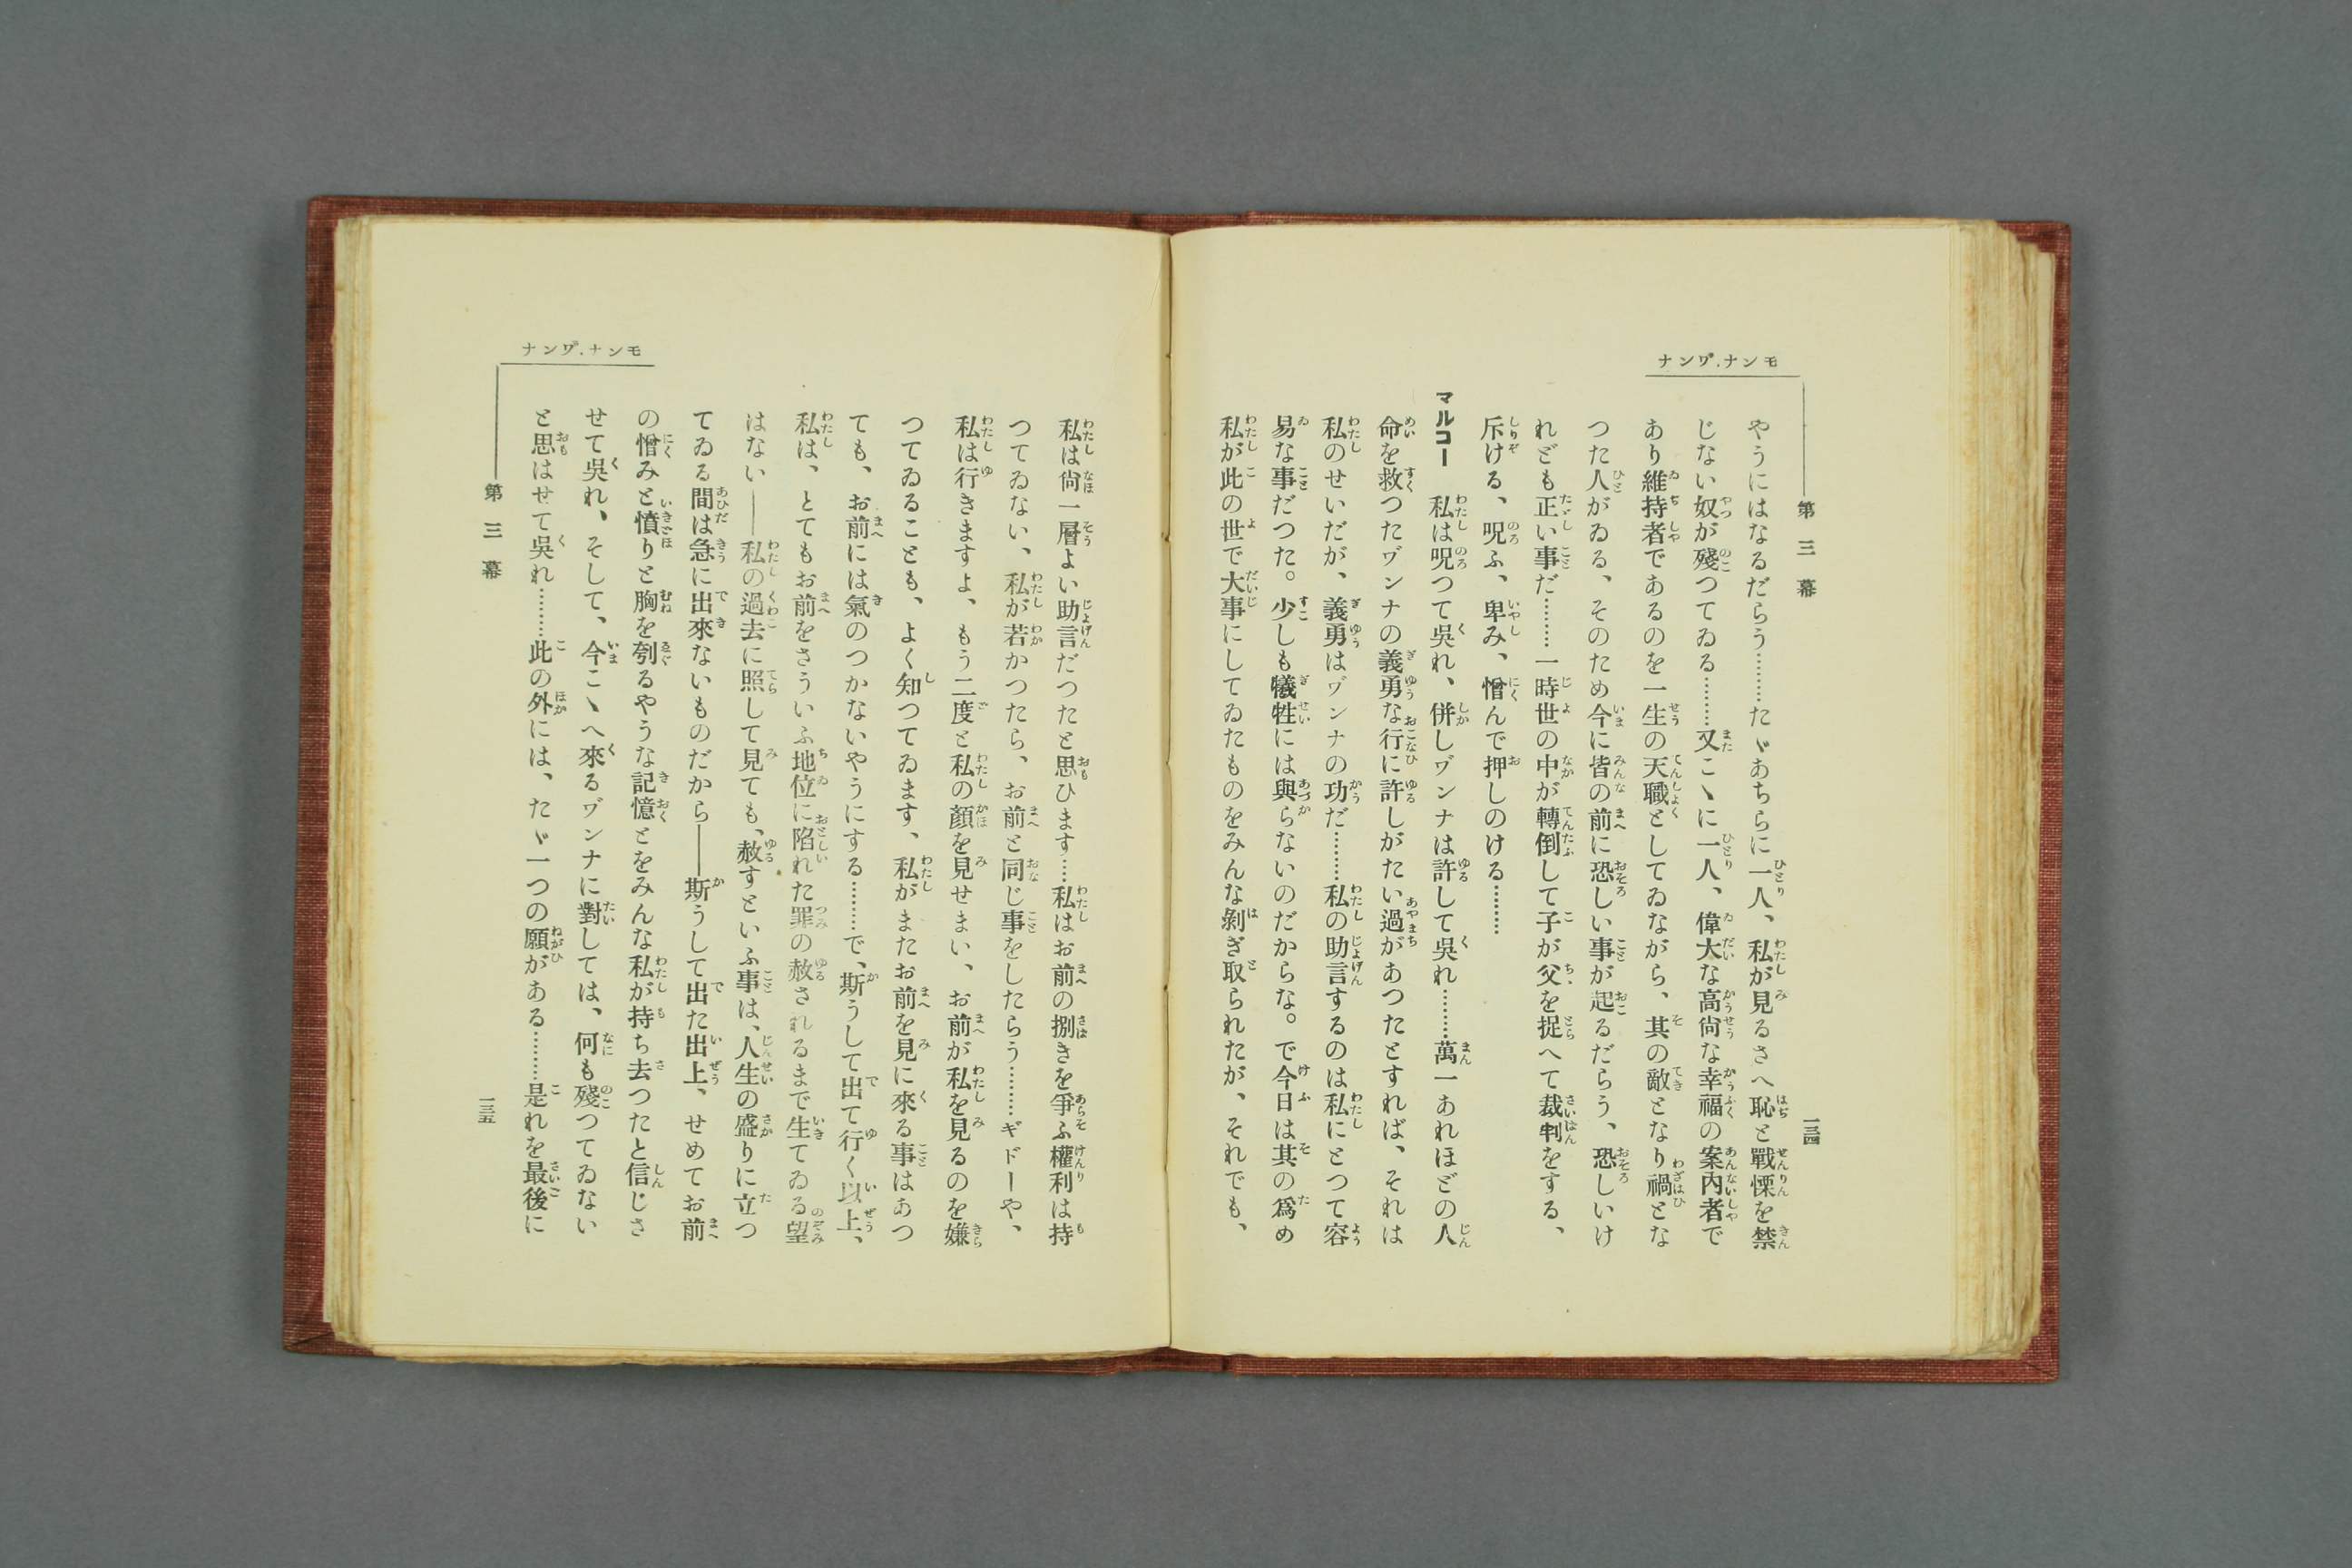 モンナ.ワ゛ンナ
第三幕
一三四
やうにはなるだらう………たゞあちらに一人、私が見るさへ恥と戰慄を禁
じない奴が殘つてゐる………又こゝに一人、偉大な高尙な幸福の案内者で
あり維持者であるのを一生の天職としてゐながら、其の敵となり禍とな
つた人がゐる、そのため今に皆の前に恐しい事が起るだらう、恐しいけ
れども正い事だ………一時世の中が轉倒して子が父を捉へて裁判をする、
斥ける、呪ふ、卑み、憎んで押しのける………
マルコー 私は呪つて吳れ、併しワ゛ンナは許して吳れ………萬一あれほどの人
命を救つたワ゛ンナの義勇な行に許しがたい過があつたとすれば、それは
私のせいだが、義勇はワ゛ンナの功だ………私の助言するのは私にとつて容
易な事だつた。少しも犧牲には與らないのだからな。で今日は其の爲め
私が此の世で大事にしてゐたものをみんな剝ぎ取られたが、それでも、
モンナ.ワ゛ンナ
第三幕
一三五
私は尙一層よい助言だつたと思ひます……私はお前の捌きを爭ふ權利は持
つてゐない、私が若かつたら、お前と同じ事をしたらう………ギドーや、
私は行きますよ、もう二度と私の顏を見せまい、お前が私を見るのを嫌
つてゐることも、よく知つてゐます、私がまたお前を見に來る事はあつ
ても、お前には氣のつかないやうにする………で、斯うして出て行く以上、
私は、とてもお前をさういふ地位に陷れた罪の赦されるまで生てゐる望
はない――私の過去に照して見ても、赦すといふ事は、人生の盛りに立つ
てゐる間は急に出來ないものだから――斯うして出た出上、せめてお前
の憎みと憤りと胸を刳るやうな記憶とをみんな私が持ち去つたと信じさ
せて吳れ、そして、今こゝへ來るワ゛ンナに對しては、何も殘つてゐない
と思はせて吳れ………此の外には、たゞ一つの願がある………是れを最後に